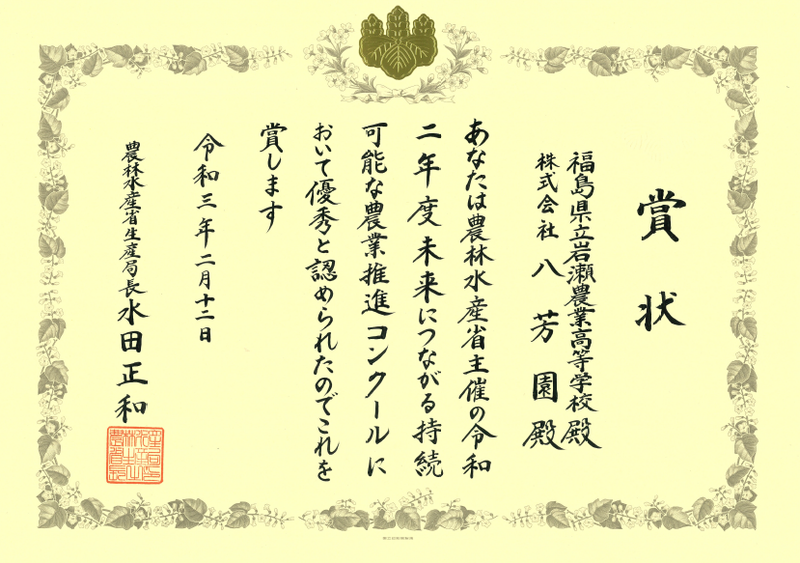 賞状
福島県立岩瀬農業高等学校殿
株式会社八芳園殿
あなたは農林水産省主催の令和
二年度未来につながる持続
可能な農業推進コンクールに
おいて優秀と認められたのでこれを
賞します
令和三年二月十二日
農林水産省生産局長水田正和